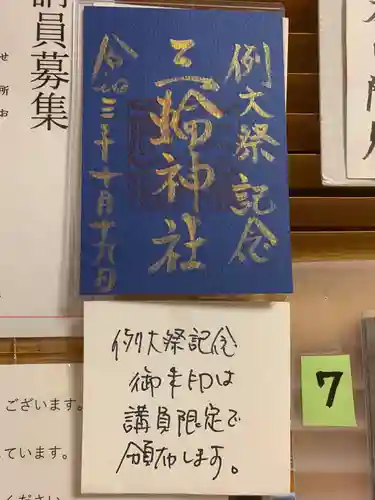 例大祭記念
三輪神社
令和三年十月十九日
例大祭記念
御朱印は
講員限定で
頒布します。
講員募集
せ
所
お
ございます。
ています。
ください
7